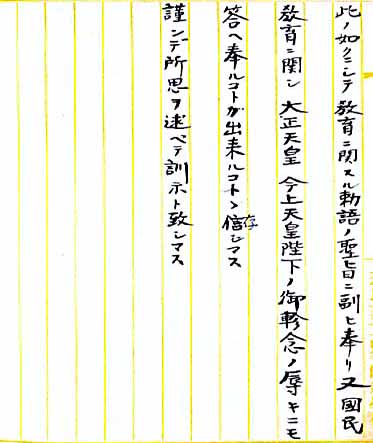 此ノ如クニシテ教育ニ関スル勅語ノ聖旨ニ副ヒ奉リ又國民
教育ニ関シ 大正天皇 今上天皇陛下ノ御軫念ノ辱キニモ
答ヘ奉ルコトガ出来ルコトヽ信ジマス
存
謹ンデ所思ヲ述ベテ訓示ト致シマス